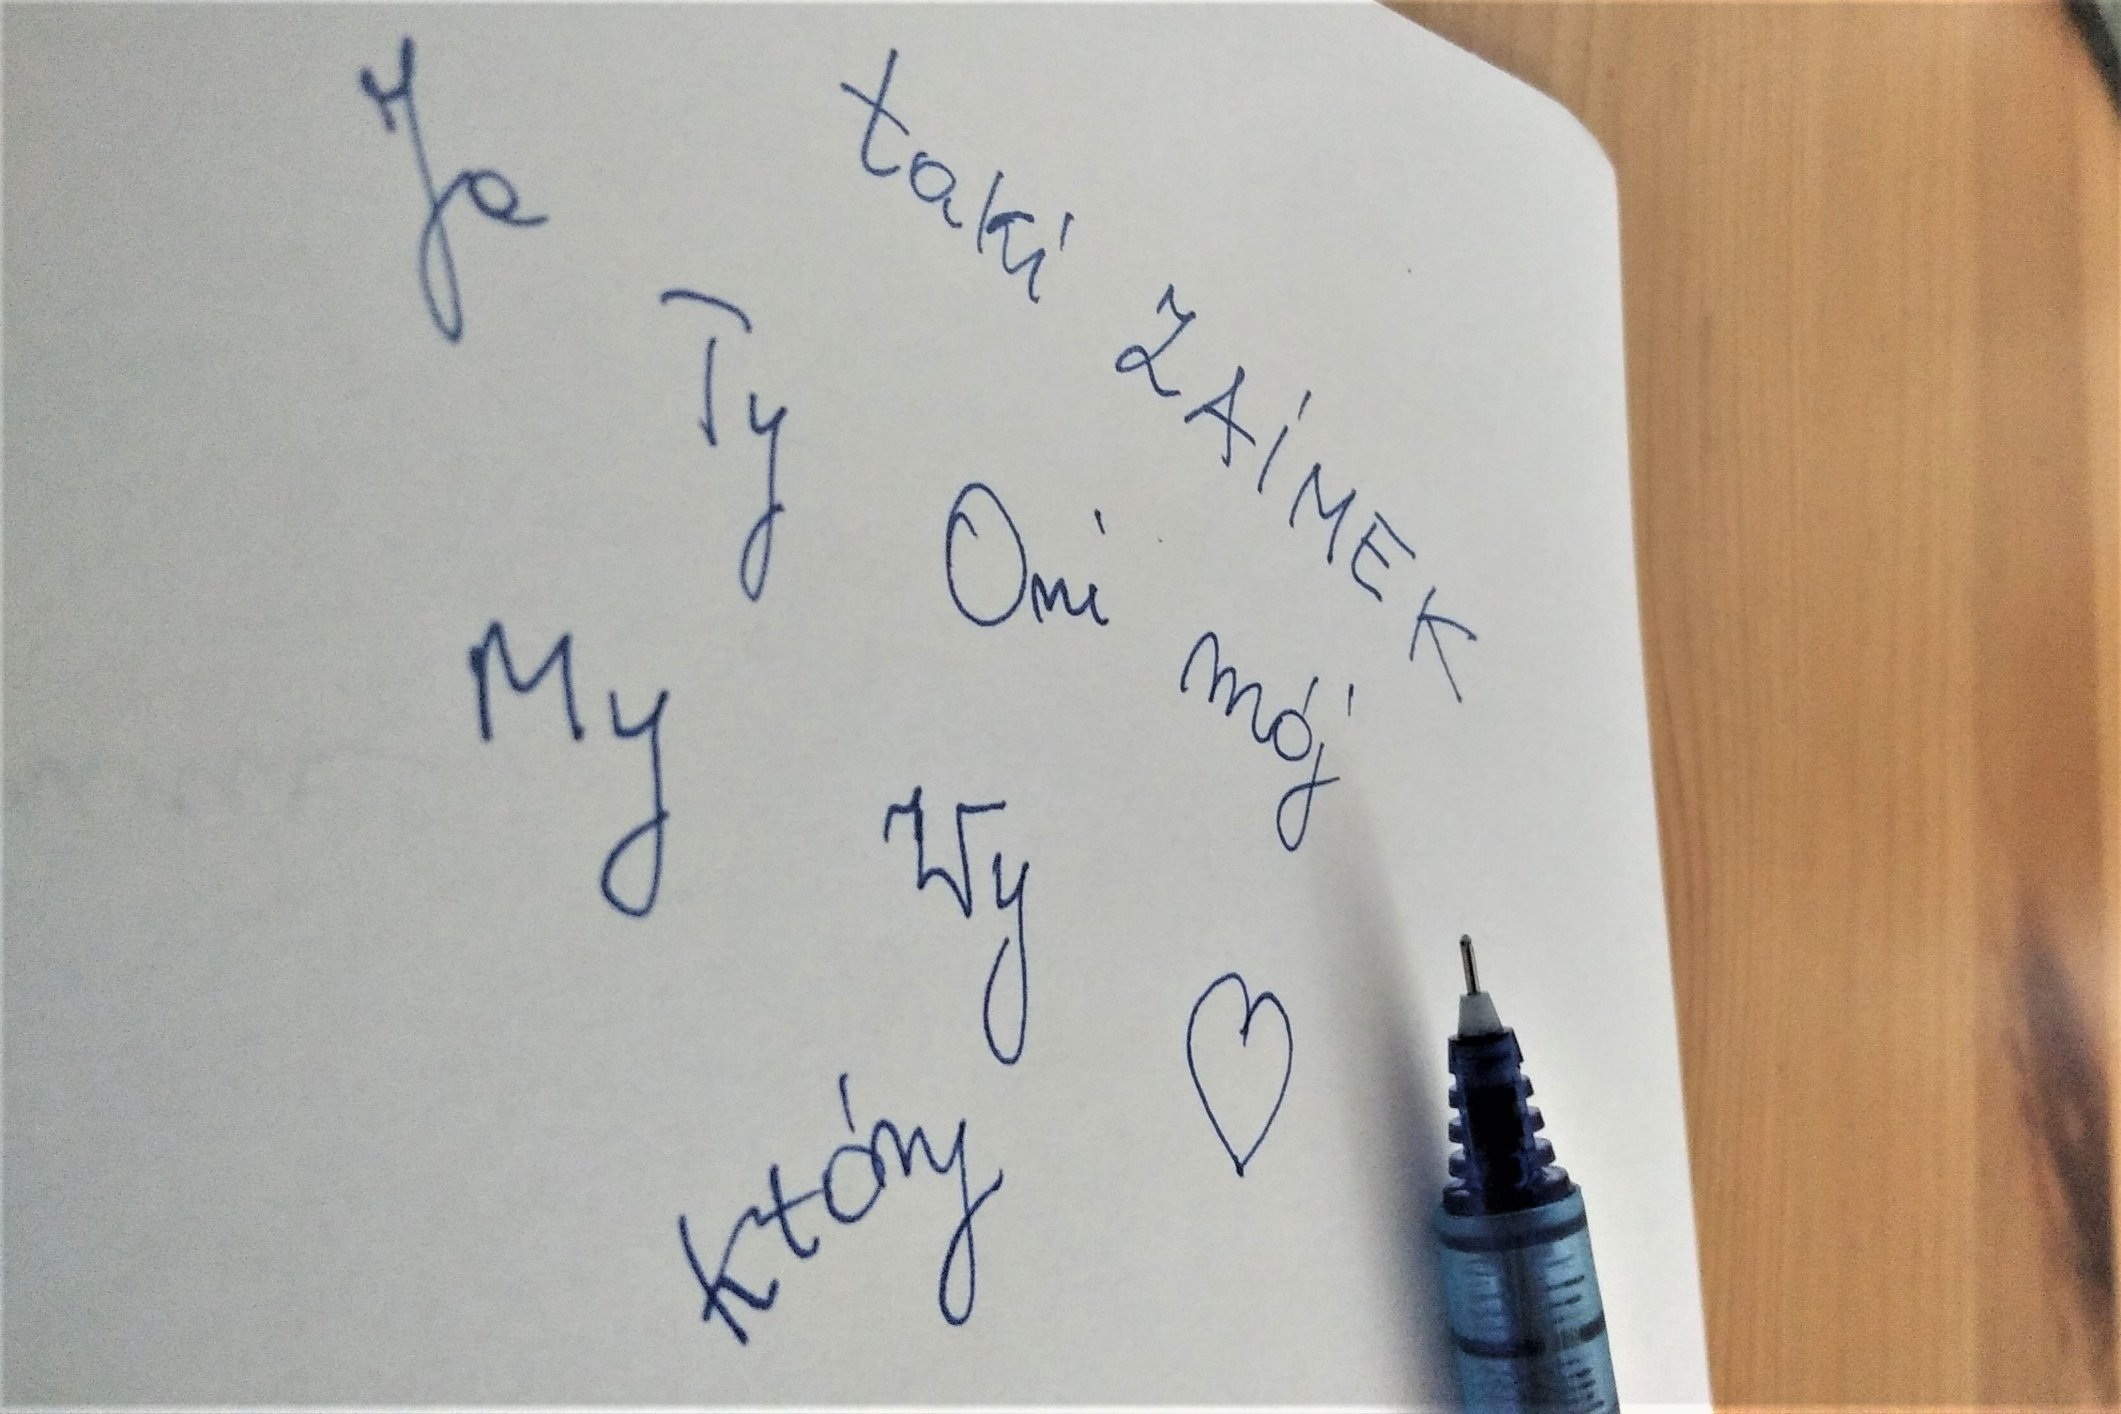 Ja
taki
Ty
ZAIMEK
Oni
My
mój
Wy
który